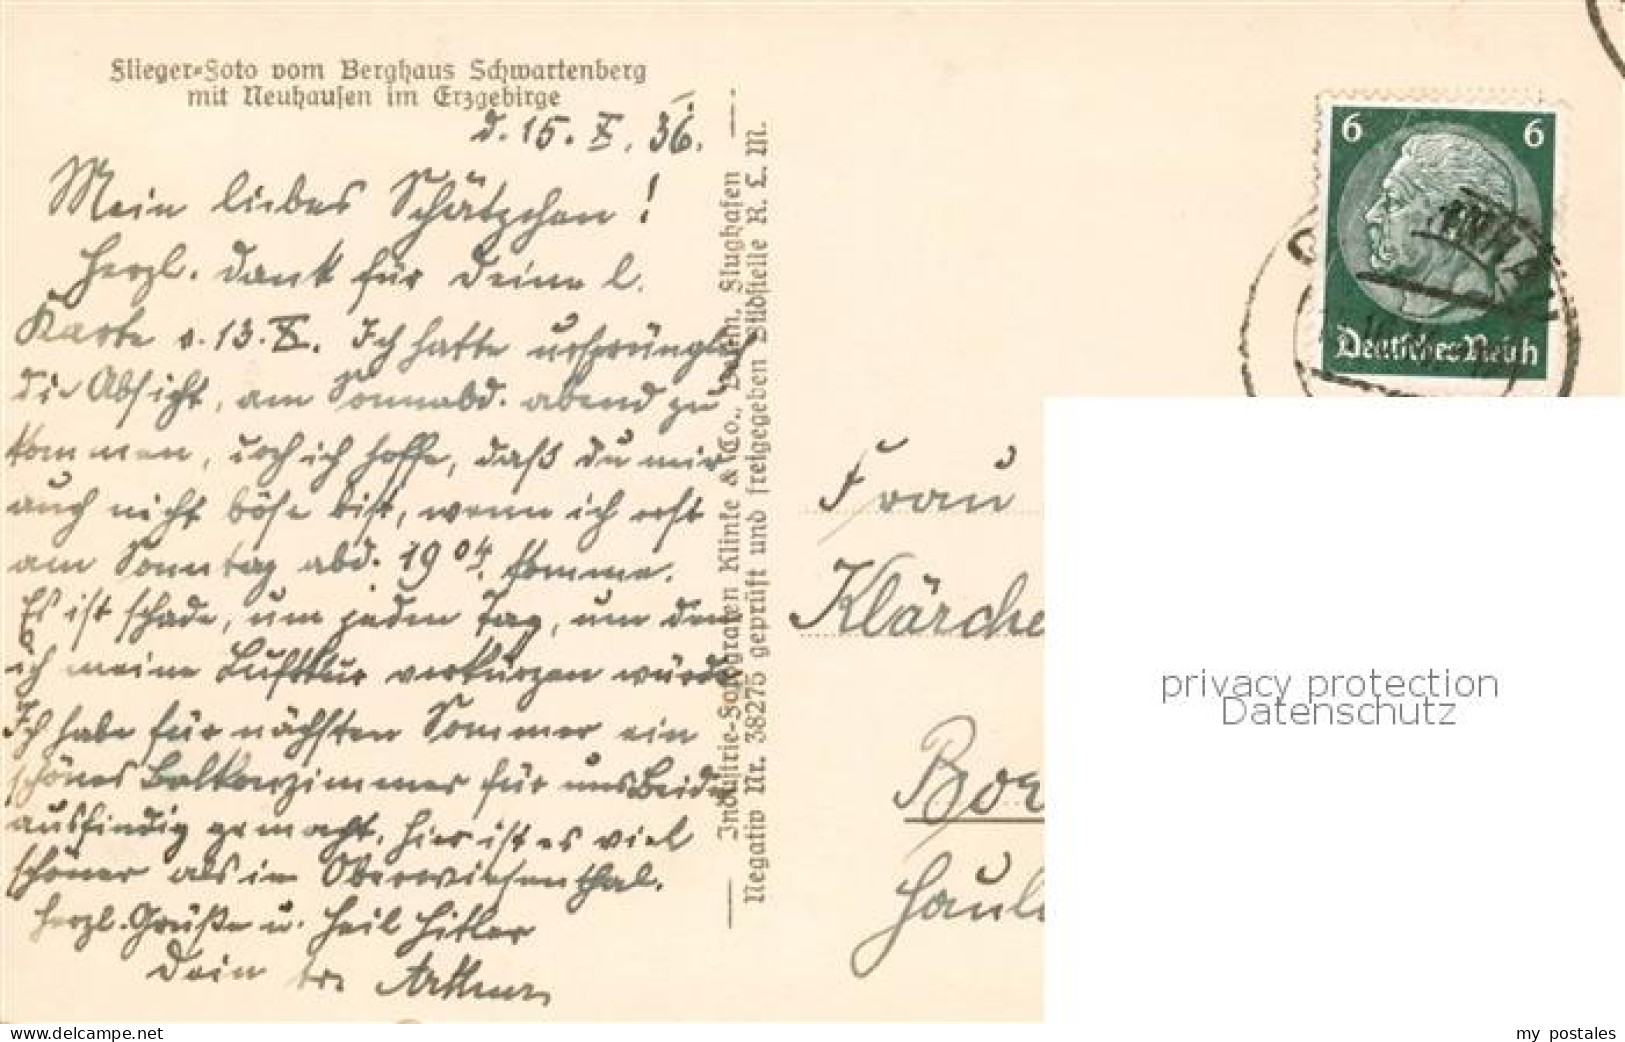 Flieger-Foto vom Berghaus Schwartenberg
mit Neuhausen im Erzgebirge
d. 15. X. 36.
Mein liebes Schätzchen!
Herzl. Dank für Deine l.
Karte v. 13. X. Ich hatte ursprünglich
die Absicht, am Sonnabd. abend zu
kommen, doch ich hoffe, daß du mir
auch nicht böse bist, wenn ich erst
am Sonntag abd. 19⁰⁴ komme.
Es ist schade, um jeden Tag, um den
ich meine Luftkur verkürzen würde
Ich habe für nächsten Sommer ein
schönes Balkonzimmer für uns Beide
ausfindig gemacht. Hier ist es viel
schöner als in Oberwiesenthal.
Herzl. Grüße u. Heil Hitler
Dein Arthur
Industrie-Fotografen Klinke & Co., Berlin, Flughafen
Negativ Nr. 38275 geprüft und freigegeben Bildstelle R. L. M.
6 6
Deutsches Reich
Frau
Klärche
Bor
Haul
privacy protection
Datenschutz
www.delcampe.net
my_postales